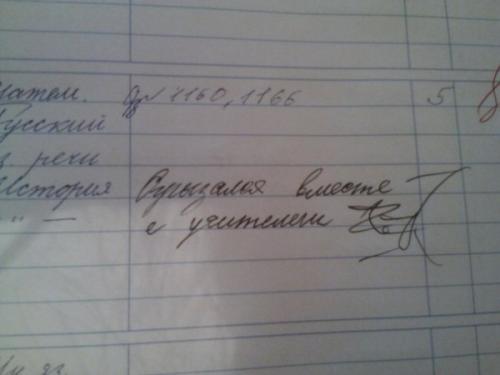 Матем. № 1160, 1166 5
Русский
р. речи
История Огрызался вместе
— " — с учителем